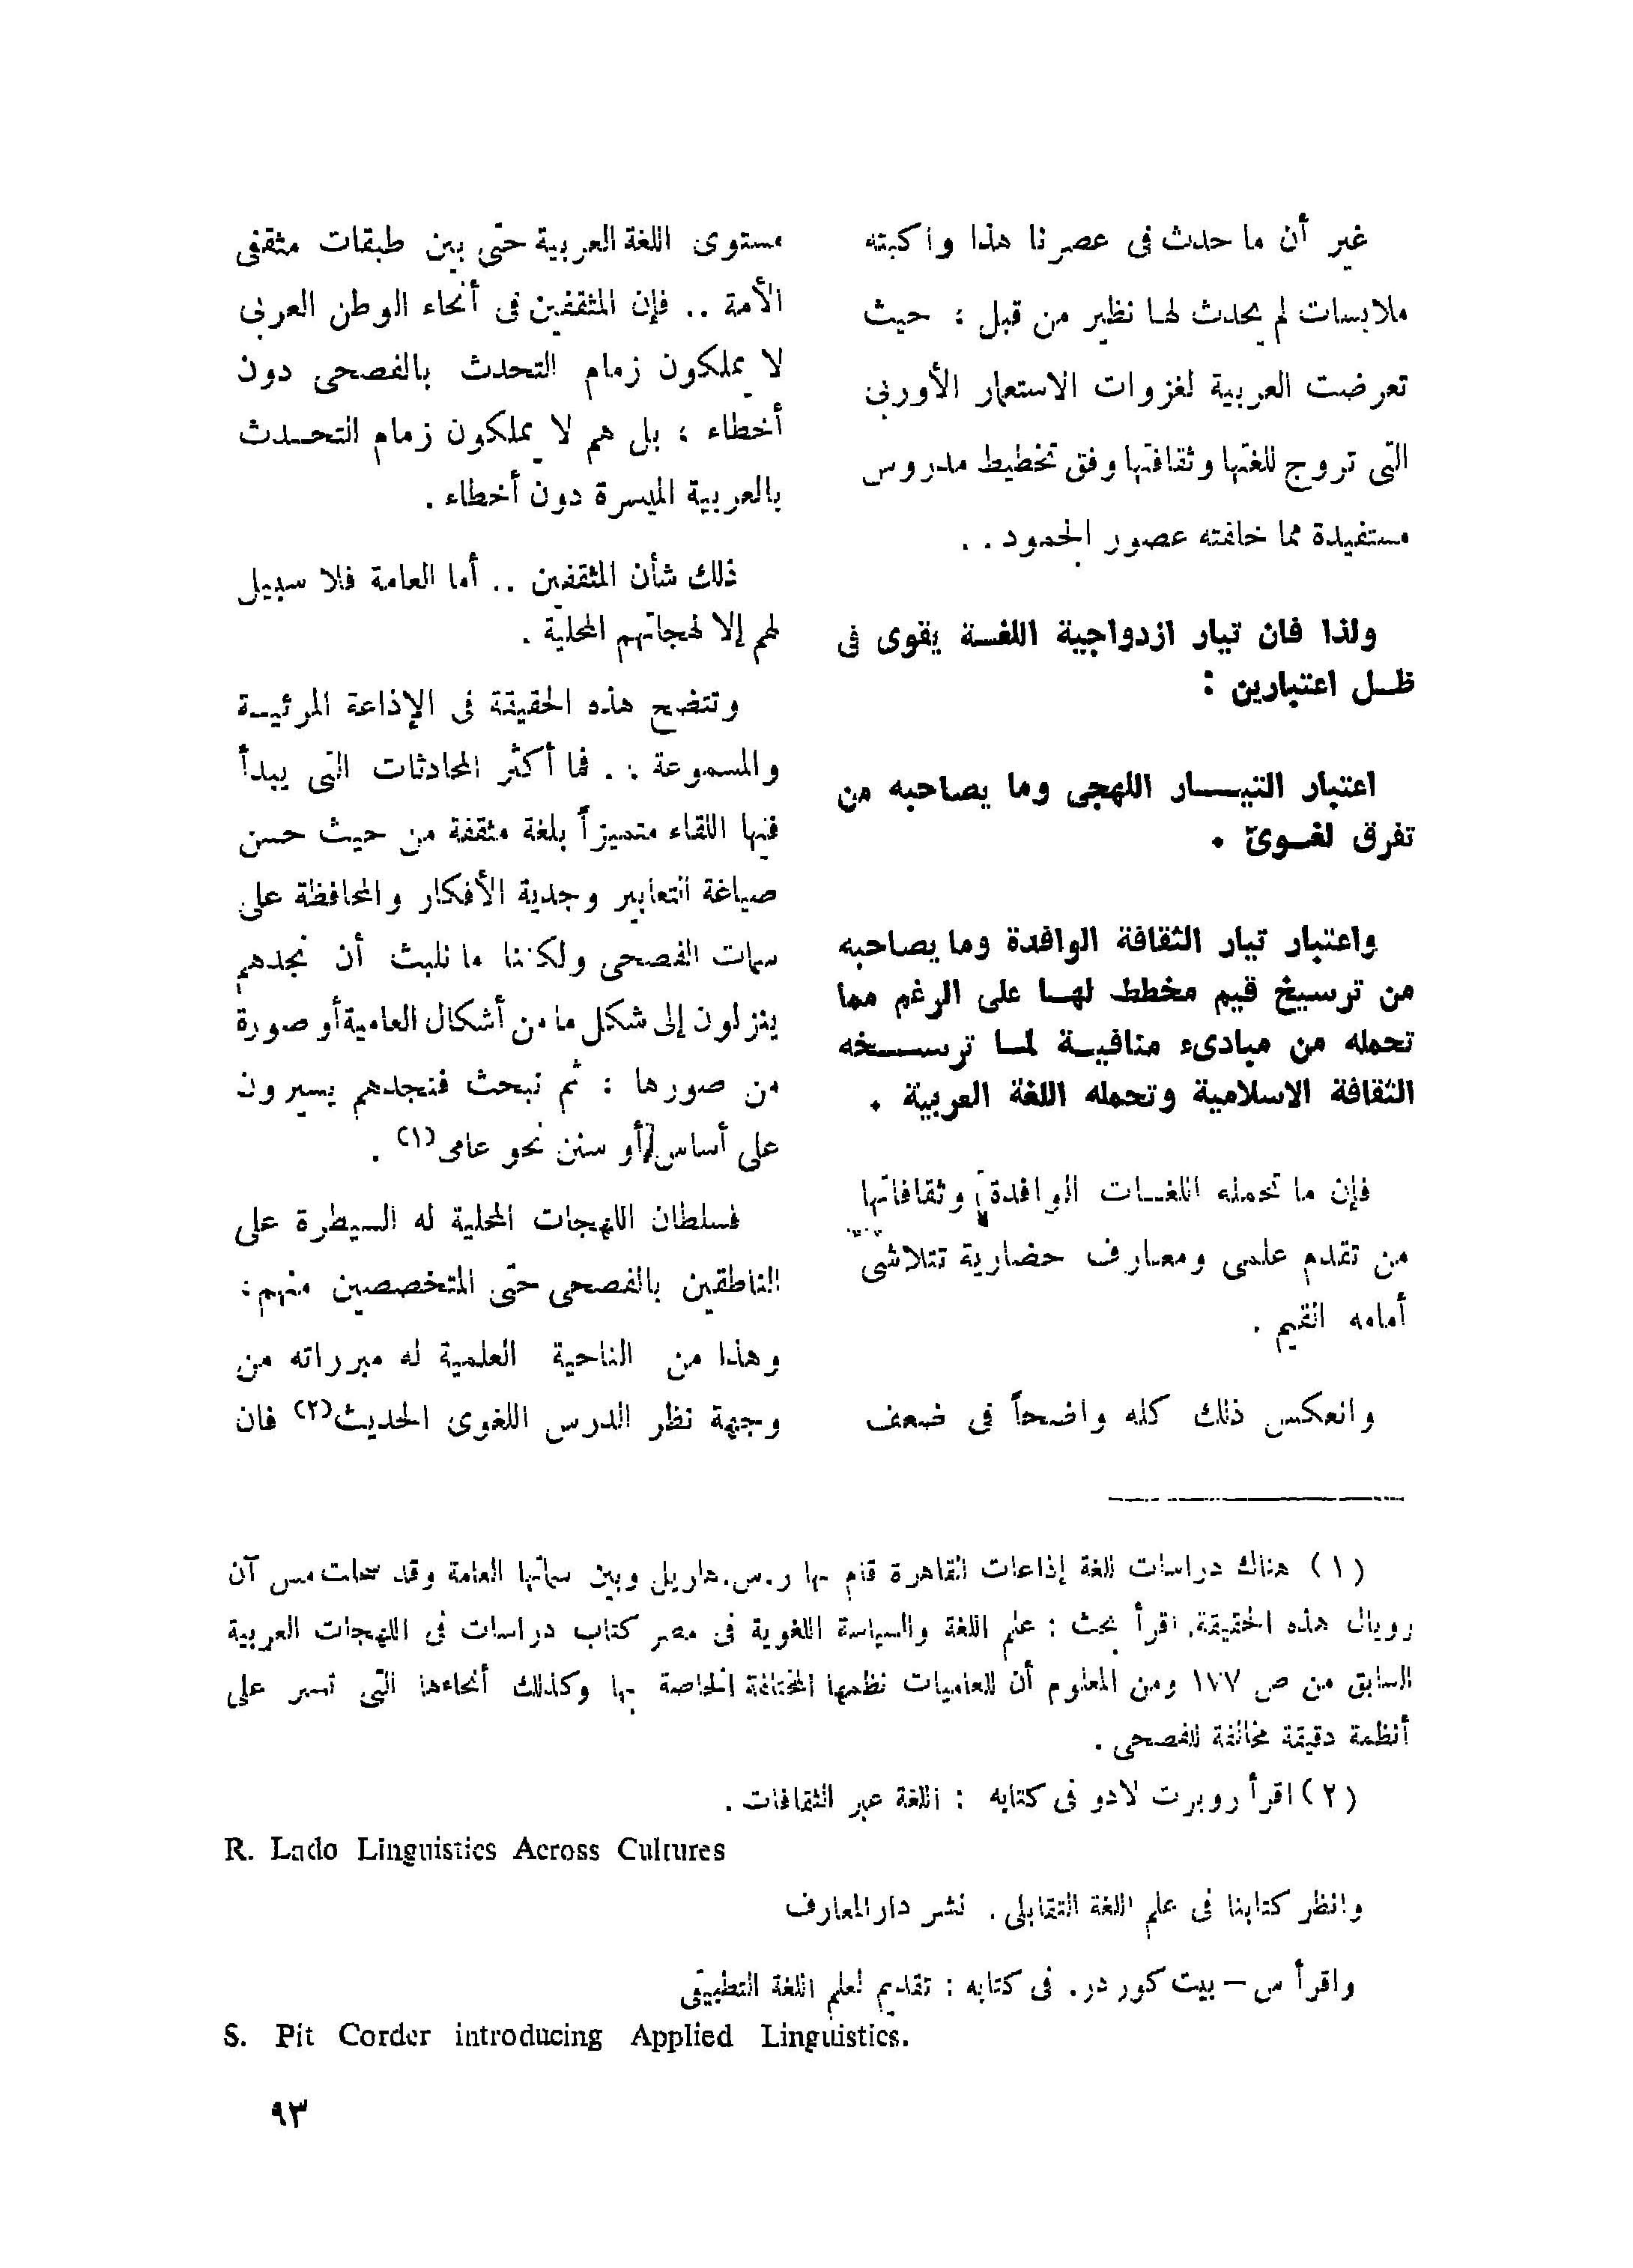 غير أن ما حدث فى عصرنا هذا واكبته
ملابسات لم يحدث لهـا نظير من قبل ؛ حيث
تعرضت العربية لغزوات الاستعمار الأوربى
التى تروج للغتها وثقافتها وفق تخطيط مدروس
مستفيدة مما خلفته عصور الجمود . .
ولذا فان تيار ازدواجية اللغـــة يقوى فى
ظــل اعتبارين :
اعتبار التيـــــار اللهجى وما يصاحبه من
تفرق لغــوىّ .
واعتبار تيار الثقافة الوافدة وما يصاحبه
من ترسيخ قيم مخطط لهــا على الرغم مما
تحمله من مبادىء منافيـــة لمــا ترســــخه
الثقافة الاسلامية وتحمله اللغة العربية .
فإن ما تحمله اللغــات الوافدة وثقافاتها
من تقدم علمى ومعـارف حضارية تتلاشى
أمامه القيم .
وانعكس ذلك كله واضحاً فى ضعف
مستوى اللغة العربية حتى بين طبقات مثقفى
الأمة .. فإن المثقفين فى أنحاء الوطن العربى
لا يملكون زمام التحدث بالفصحى دون
أخطاء ؛ بل هم لا يملكون زمام التحــدث
بالعربية الميسرة دون أخطاء .
ذلك شأن المثقفين .. أما العامة فلا سبيل
لهم إلا لهجاتهم المحلية .
وتتضح هذه الحقيقة فى الإذاعة المرئيــة
والمسموعة . . فما أكثر المحادثات التى يبدأ
فيها اللقاء متميزاً بلغة مثقفة من حيث حسن
صياغة التعابير وجدية الأفكار والمحافظة على
سمات الفصحى ولكننا ما نلبث أن نجدهم
ينزلون إلى شكل ما من أشكال العامية أو صورة
من صورها ؛ ثم نبحث فنجدهم يسيرون
على أساس أو سنن نحو عامى (١) .
فسلطان اللهجات المحلية له السيطرة على
الناطقين بالفصحى حتى المتخصصين منهم :
وهذا من الناحية العلمية له مبرراته من
وجهة نظر الدرس اللغوى الحديث (٢) فان
(١) هناك دراسات للغة إذاعات القاهرة قام بها ر.س.هاريل وبين سماتها العامة وقد سجلت مس آن
رويال هذه الحقيقة. اقرأ بحث : علم اللغة والسياسة اللغوية فى مصر كتاب دراسات فى اللهجات العربية
السابق من ص ١٧٧ ومن المعلوم أن للعاميات نظمها المختلفة الخاصة بها وكذلك أنحاءها التى تسير على
أنظمة دقيقة مخالفة للفصحى .
(٢) اقرأ روبرت لادو فى كتابه : اللغة عبر الثقافات .
R. Lado Linguistics Across Cultures
وانظر كتابنا فى علم اللغة التقابلى . نشر دار المعارف
واقرأ س – بيت كوردر. فى كتابه : تقديم لعلم اللغة التطبيقى
S. Pit Corder introducing Applied Linguistics.
٩٣